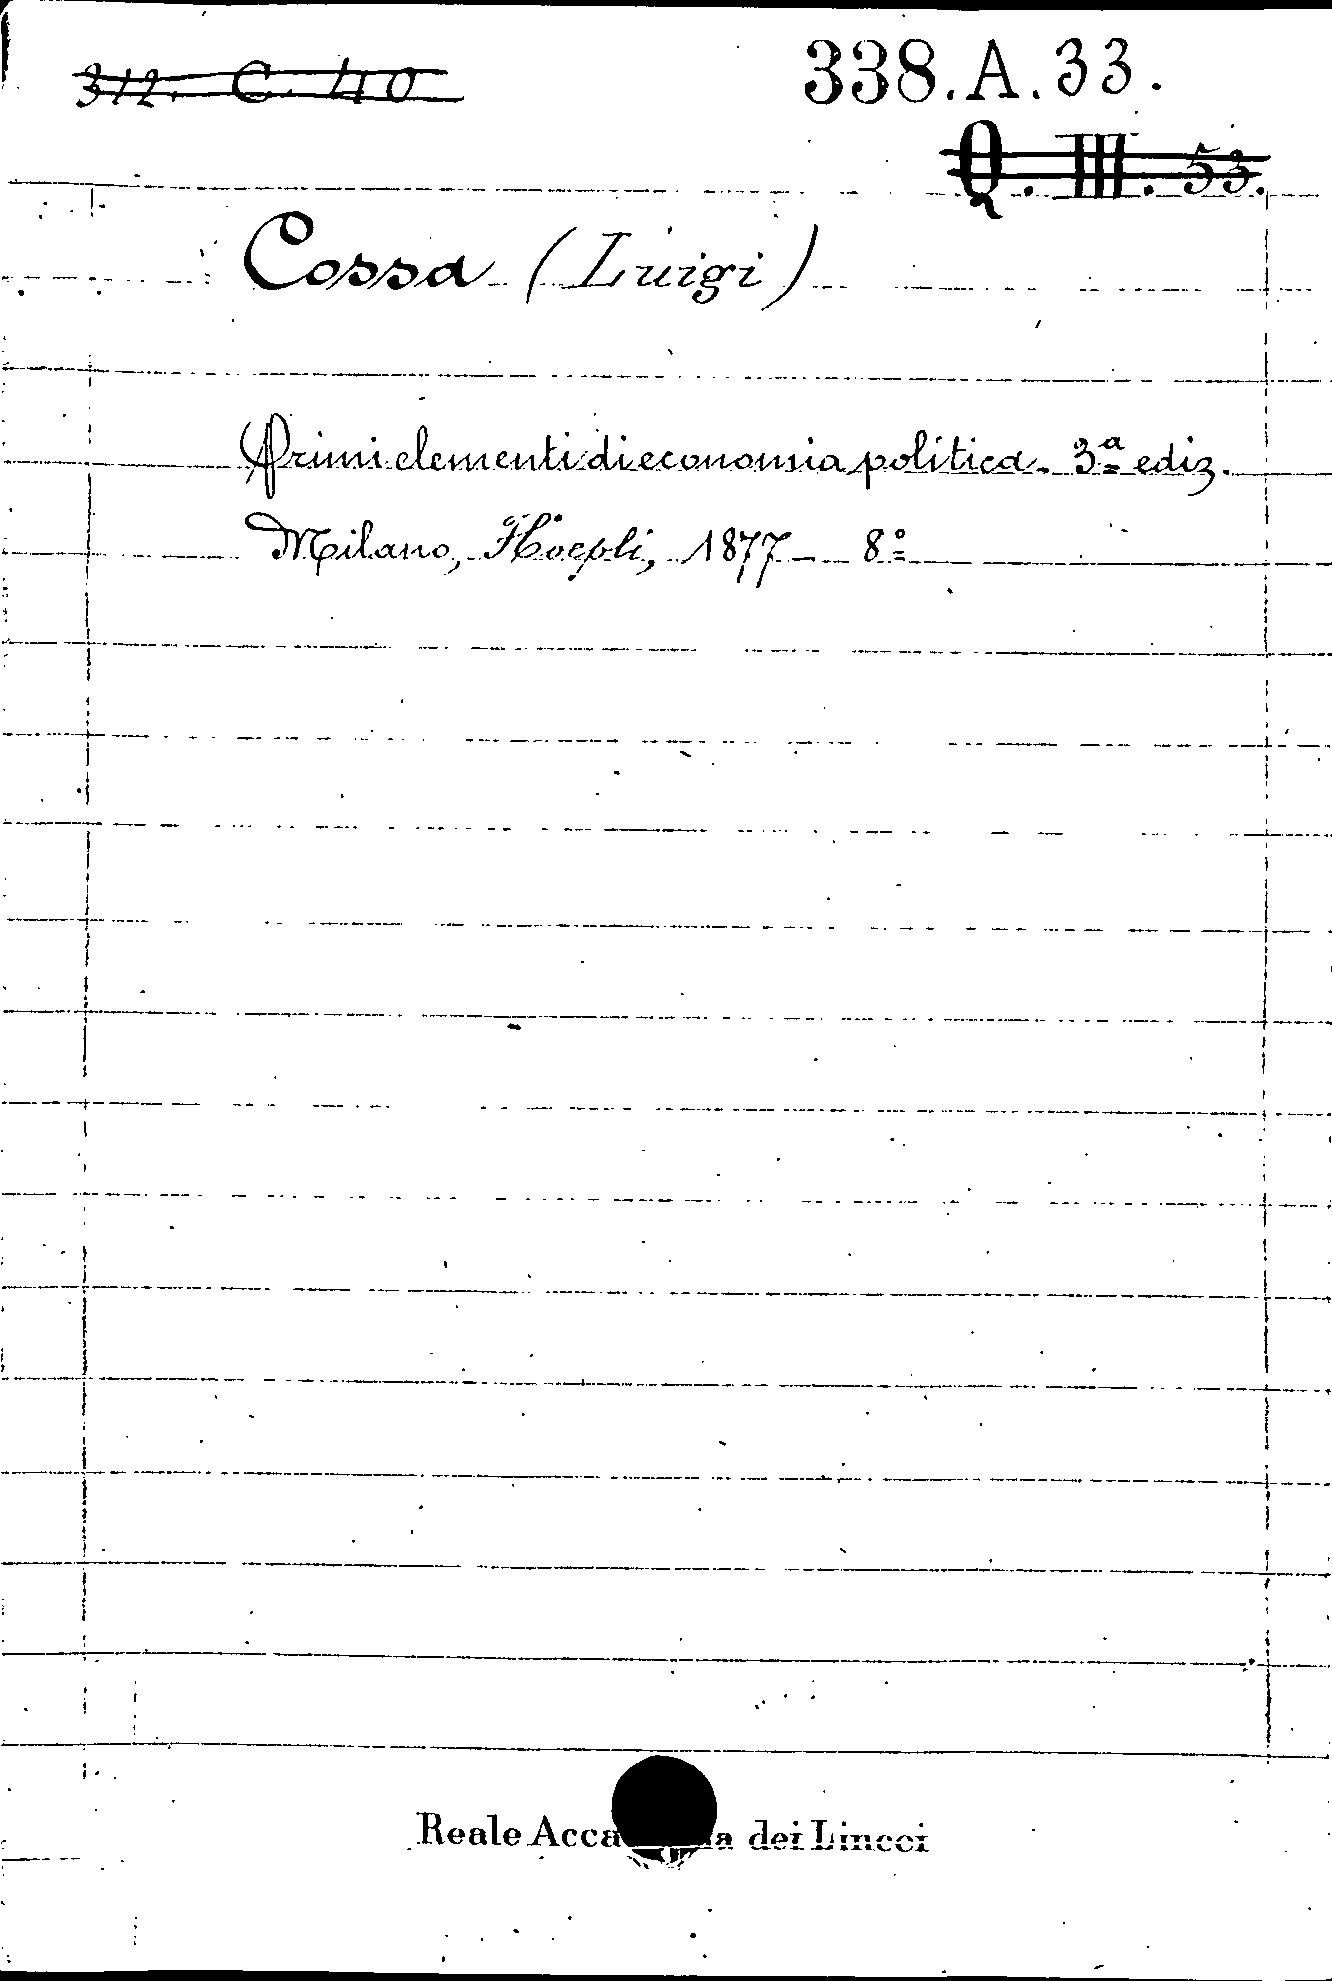 312. C. 40
338.A.33.
Q. III. 53.
Cossa (Luigi)
Primi elementi di economia politica. 3ª ediz.
Milano, Hoepli, 1877 — 8º
Reale Acca dei Lincei